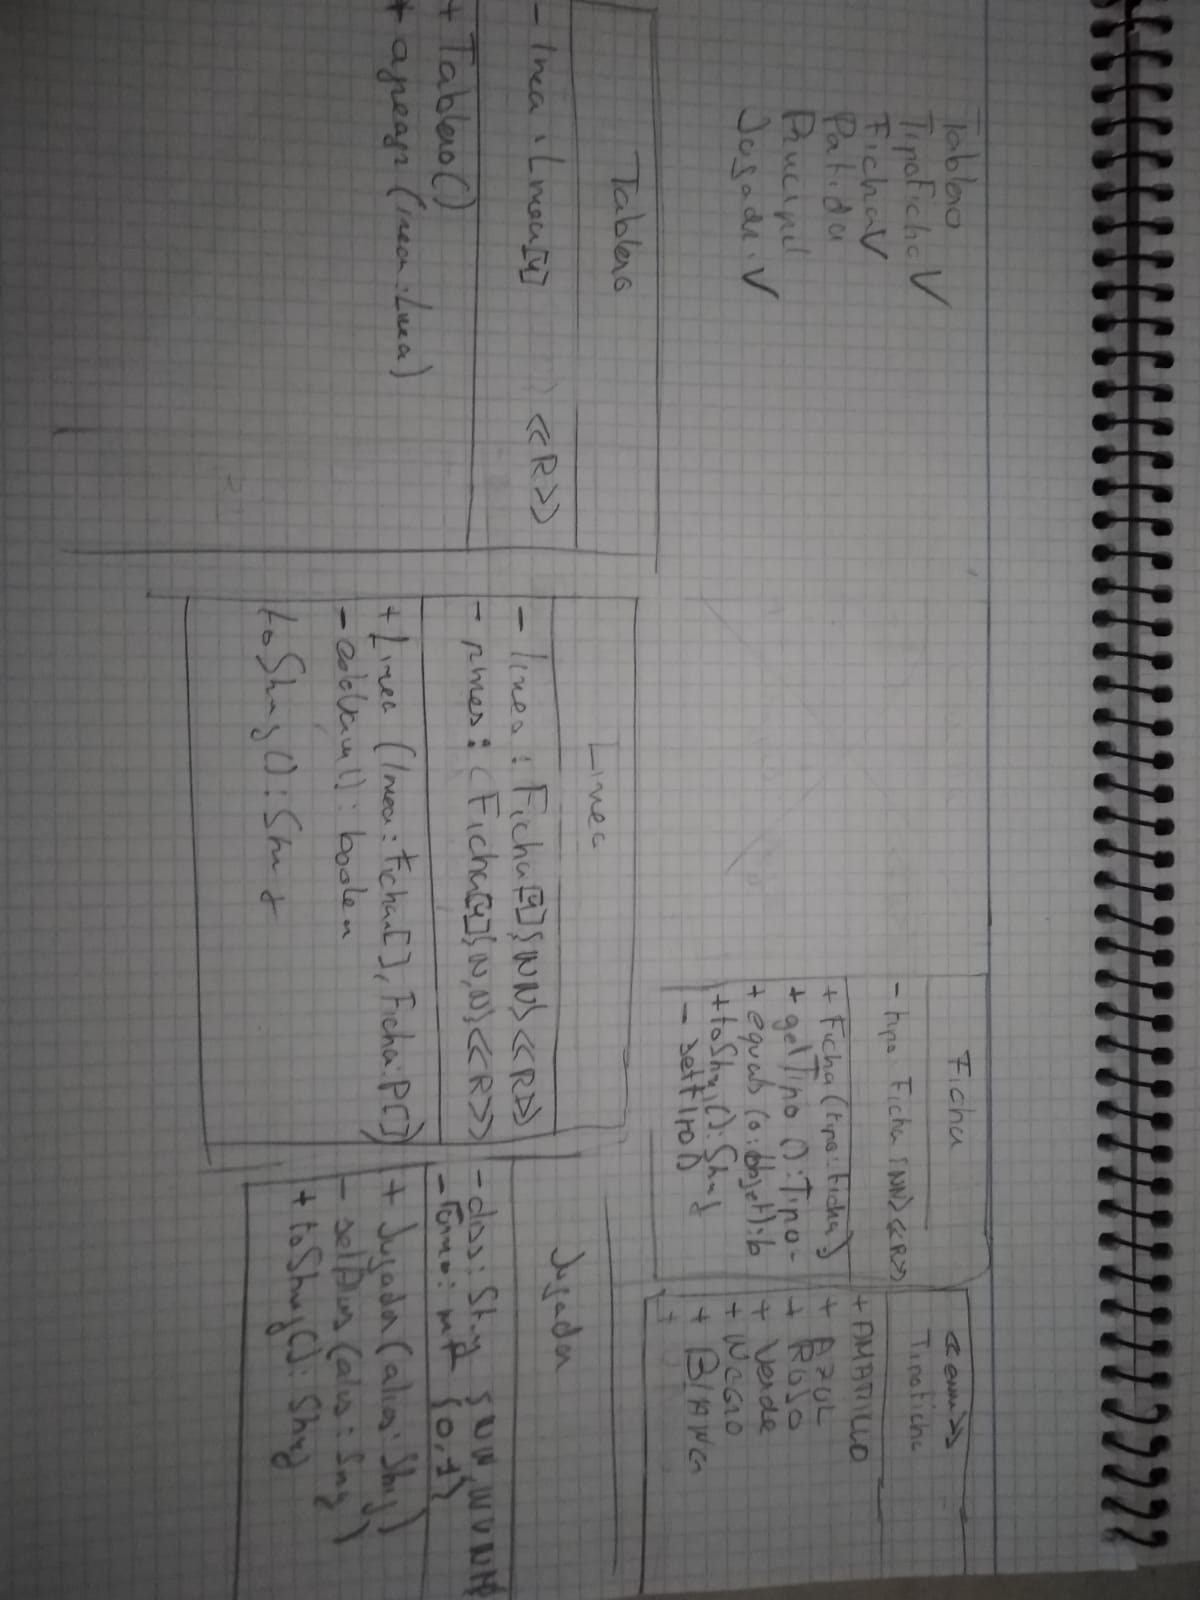 Tablero
TipoFicha V
Ficha V
Partida
Principal
Jugador V
Ficha
- tipo Ficha {NN} <<R>>
+ Ficha (tipo: Ficha)
+ getTipo () : Tipo -
+ equals (o: Objet) : b
+ toString (): String
-
<<enum>>
TipoFicha
+ AMARILLO
+ AZUL
+ ROJO
+ Verde
+ NEGRO
+ BLANCO
+
Tablero
- linea : Linea[4] <<R>>
+ Tablero ()
+ (linea : Linea)
Linea
- linea : Ficha[4] {NN} <<R>>
- : Ficha[4] {N,N} <<R>>
+ Linea (linea : Ficha[], Ficha: P[])
- () : boolen
toString () : String
Jugador
- alias : String {NN,
- Turno : int {0,1}
+ Jugador (alias : String)
- setAlias (alias : String)
+ toString () : String